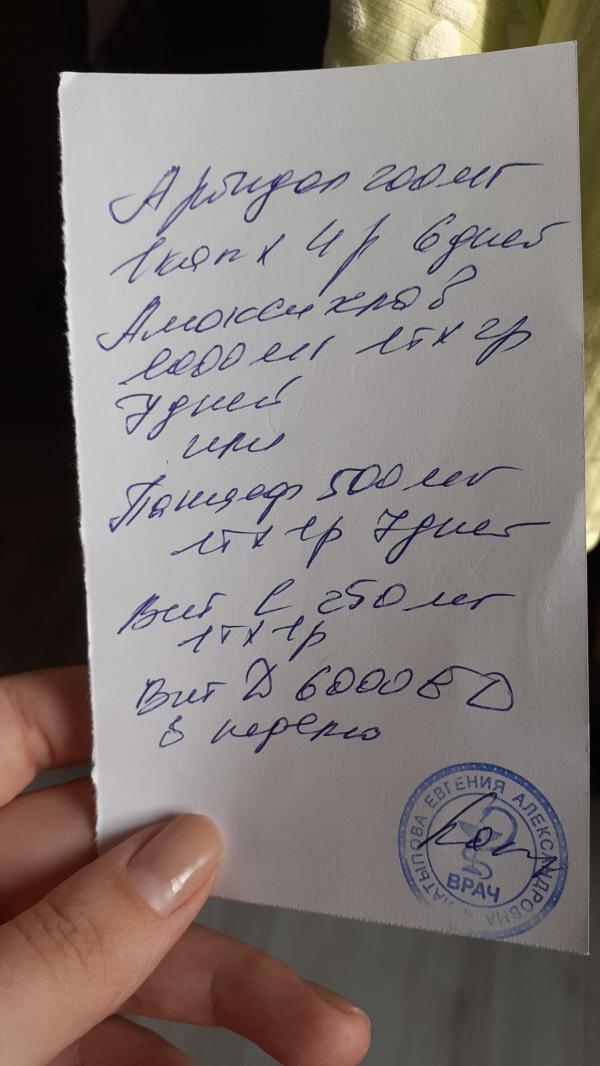 Арбидол 200мг
1кап х 4 р 6 дней
Амоксиклав
1000 мг 1т х 2р
7 дней
или
Панцеф 500 мг
1т х 1р 7 дней
Вит С 250 мг
1т х 1р
Вит Д 6000 ЕД
в неделю
ЛАТЫПОВА ЕВГЕНИЯ АЛЕКСАНДРОВНА
ВРАЧ